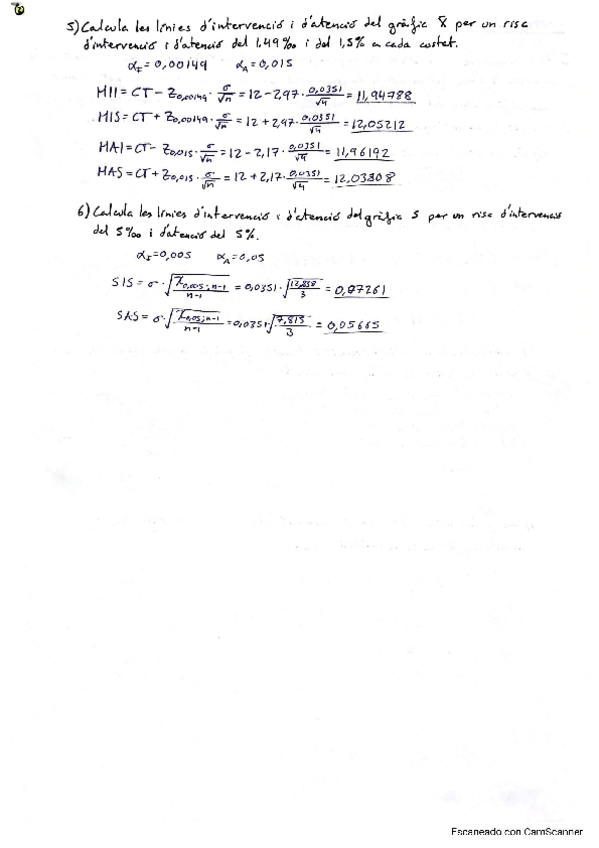 5) Calcula les línies d'intervenció i d'atenció del gràfic X̄ per un risc
d'intervenció i d'atenció del 1,49‰ i del 1,5% a cada costat.
α_I = 0,00149   α_A = 0,015
MII = CT − Z_0,00149 · σ/√n = 12 − 2,97 · 0,0351/√4 = 11,94788
MIS = CT + Z_0,00149 · σ/√n = 12 + 2,97 · 0,0351/√4 = 12,05212
MAI = CT − Z_0,015 · σ/√n = 12 − 2,17 · 0,0351/√4 = 11,96192
MAS = CT + Z_0,015 · σ/√n = 12 + 2,17 · 0,0351/√4 = 12,03808
6) Calcula les línies d'intervenció i d'atenció del gràfic S per un risc d'intervenció
del 5‰ i d'atenció del 5%.
α_I = 0,005   α_A = 0,05
SIS = σ · √(χ_0,005; n−1 / n−1) = 0,0351 · √(12,838/3) = 0,07261
SAS = σ · √(χ_0,05; n−1 / n−1) = 0,0351 √(7,815/3) = 0,05665
Escaneado con CamScanner